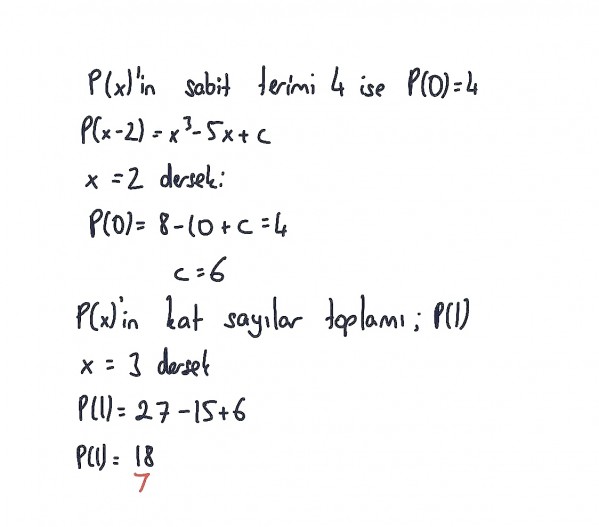 P(x)'in sabit terimi 4 ise P(0)=4
P(x-2) = x³-5x+c
x = 2 dersek:
P(0)= 8-10+c=4
c=6
P(x)'in kat sayılar toplamı; P(1)
x = 3 dersek
P(1)= 27-15+6
P(1)= 18
7